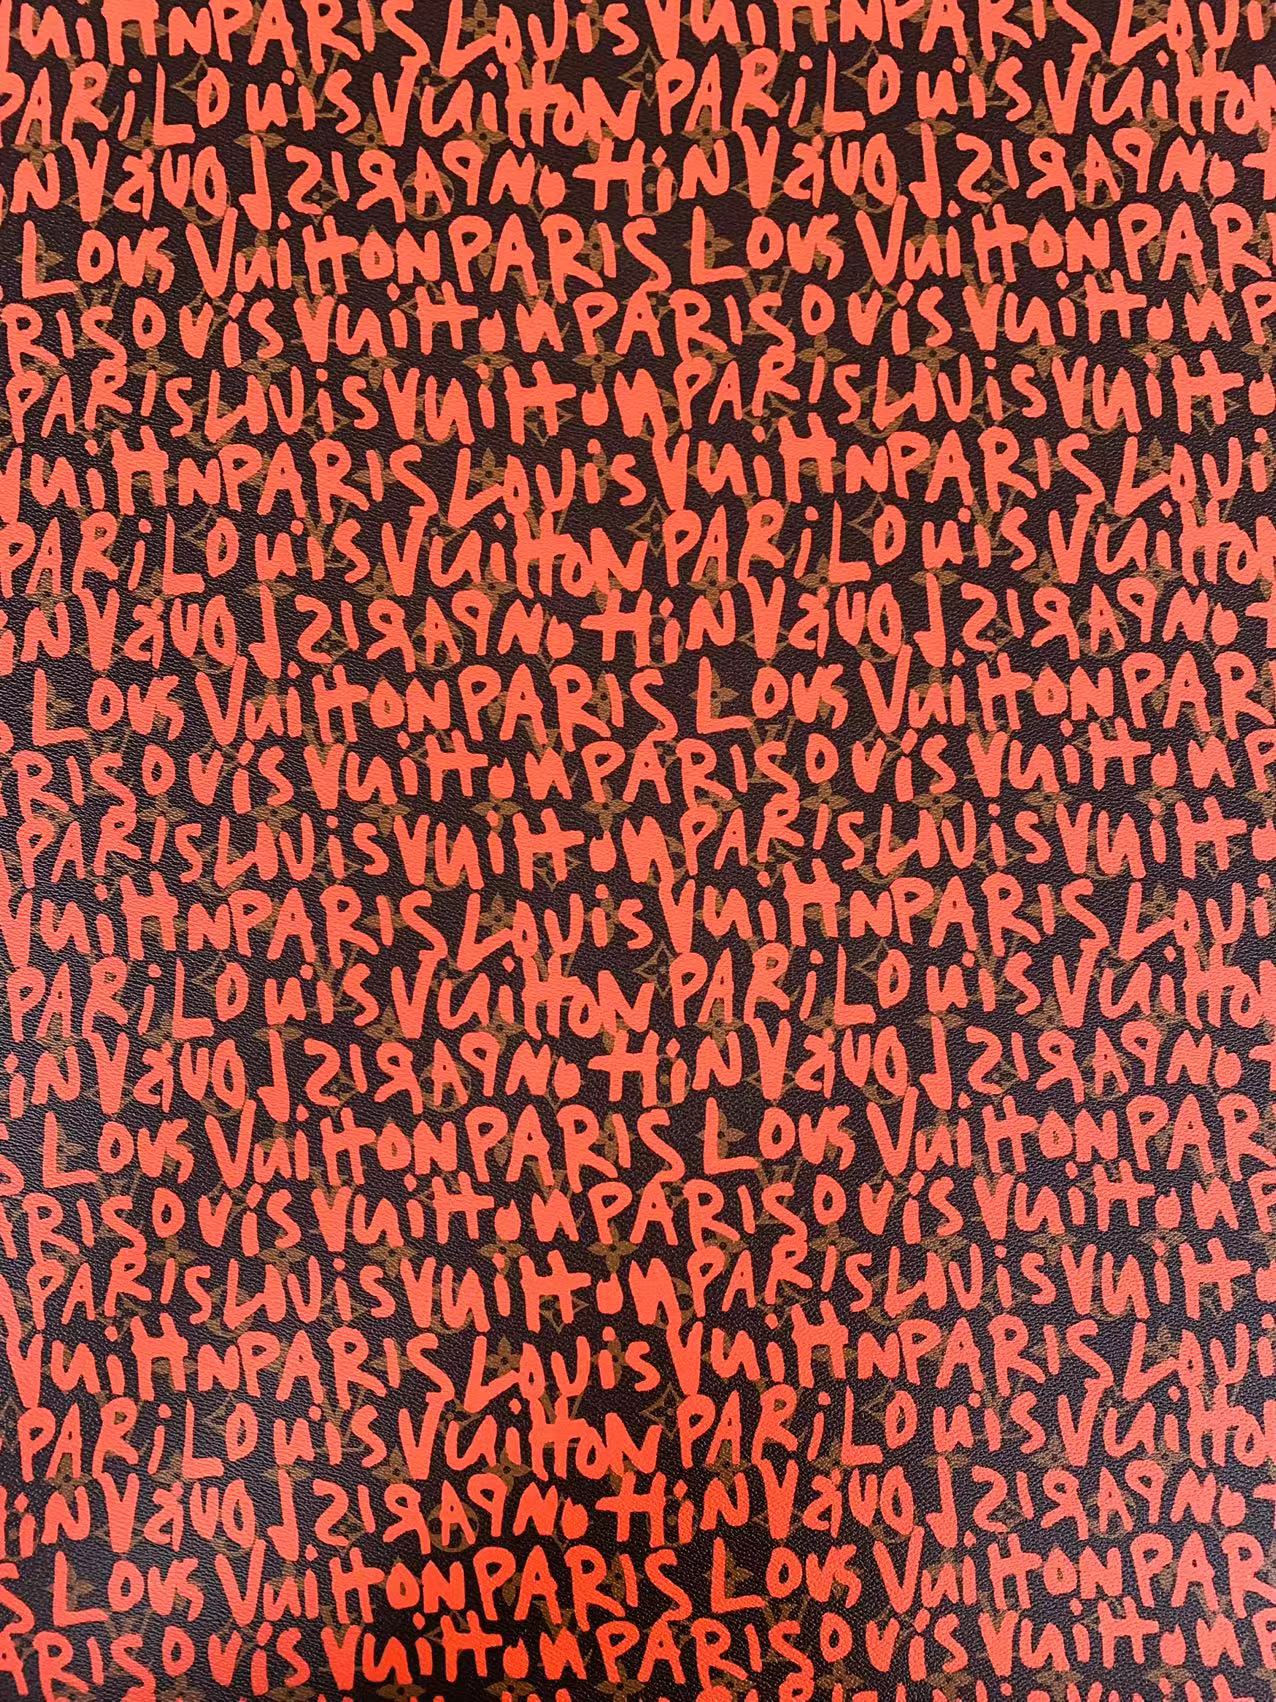 VuiHNPARIS LOUis VuiHNPARIS LOUi
PARiLOuiSVuiHoNPARiLOuiSVuiHoN
NVsuoL SIRAPNoHiNVsuoL SIRAPNo
LOUS VuiHoNPARIS LOUS VuiHoNPARI
RISOUisVuiHoNPARISOUisVuiHoNP
PARISLOUisVuiHoNPARISLOUisVuiHo
VuiHNPARIS LOUis VuiHNPARIS LOUi
PARiLOuiSVuiHoNPARiLOuiSVuiHoN
iNVsuoL SIRAPNoHiNVsuoL SIRAPNo
S LOUS VuiHoNPARIS LOUS VuiHoNPAR
RISOUisVuiHoNPARISOUisVuiHoNP
PARISLOUisVuiHoNPARISLOUisVuiHo
VuiHNPARIS LOUis VuiHNPARIS LOUi
PARiLOuiSVuiHoNPARiLOuiSVuiHoN
iNVsuoL SIRAPNoHiNVsuoL SIRAPNo
S LOUS VuiHoNPARIS LOUS VuiHoNPAR
RISOUisVuiHoNPARISOUisVuiHoNP
PARISLOUisVuiHoNPARISLOUisVuiHo
VuiHNPARIS LOUis VuiHNPARIS LOUi
PARiLOuiSVuiHoNPARiLOuiSVuiHoN
iNVsuoL SIRAPNoHiNVsuoL SIRAPNo
S LOUS VuiHoNPARIS LOUS VuiHoNPAR
ARISOUisVuiHoNPARISOUisVuiHoNP